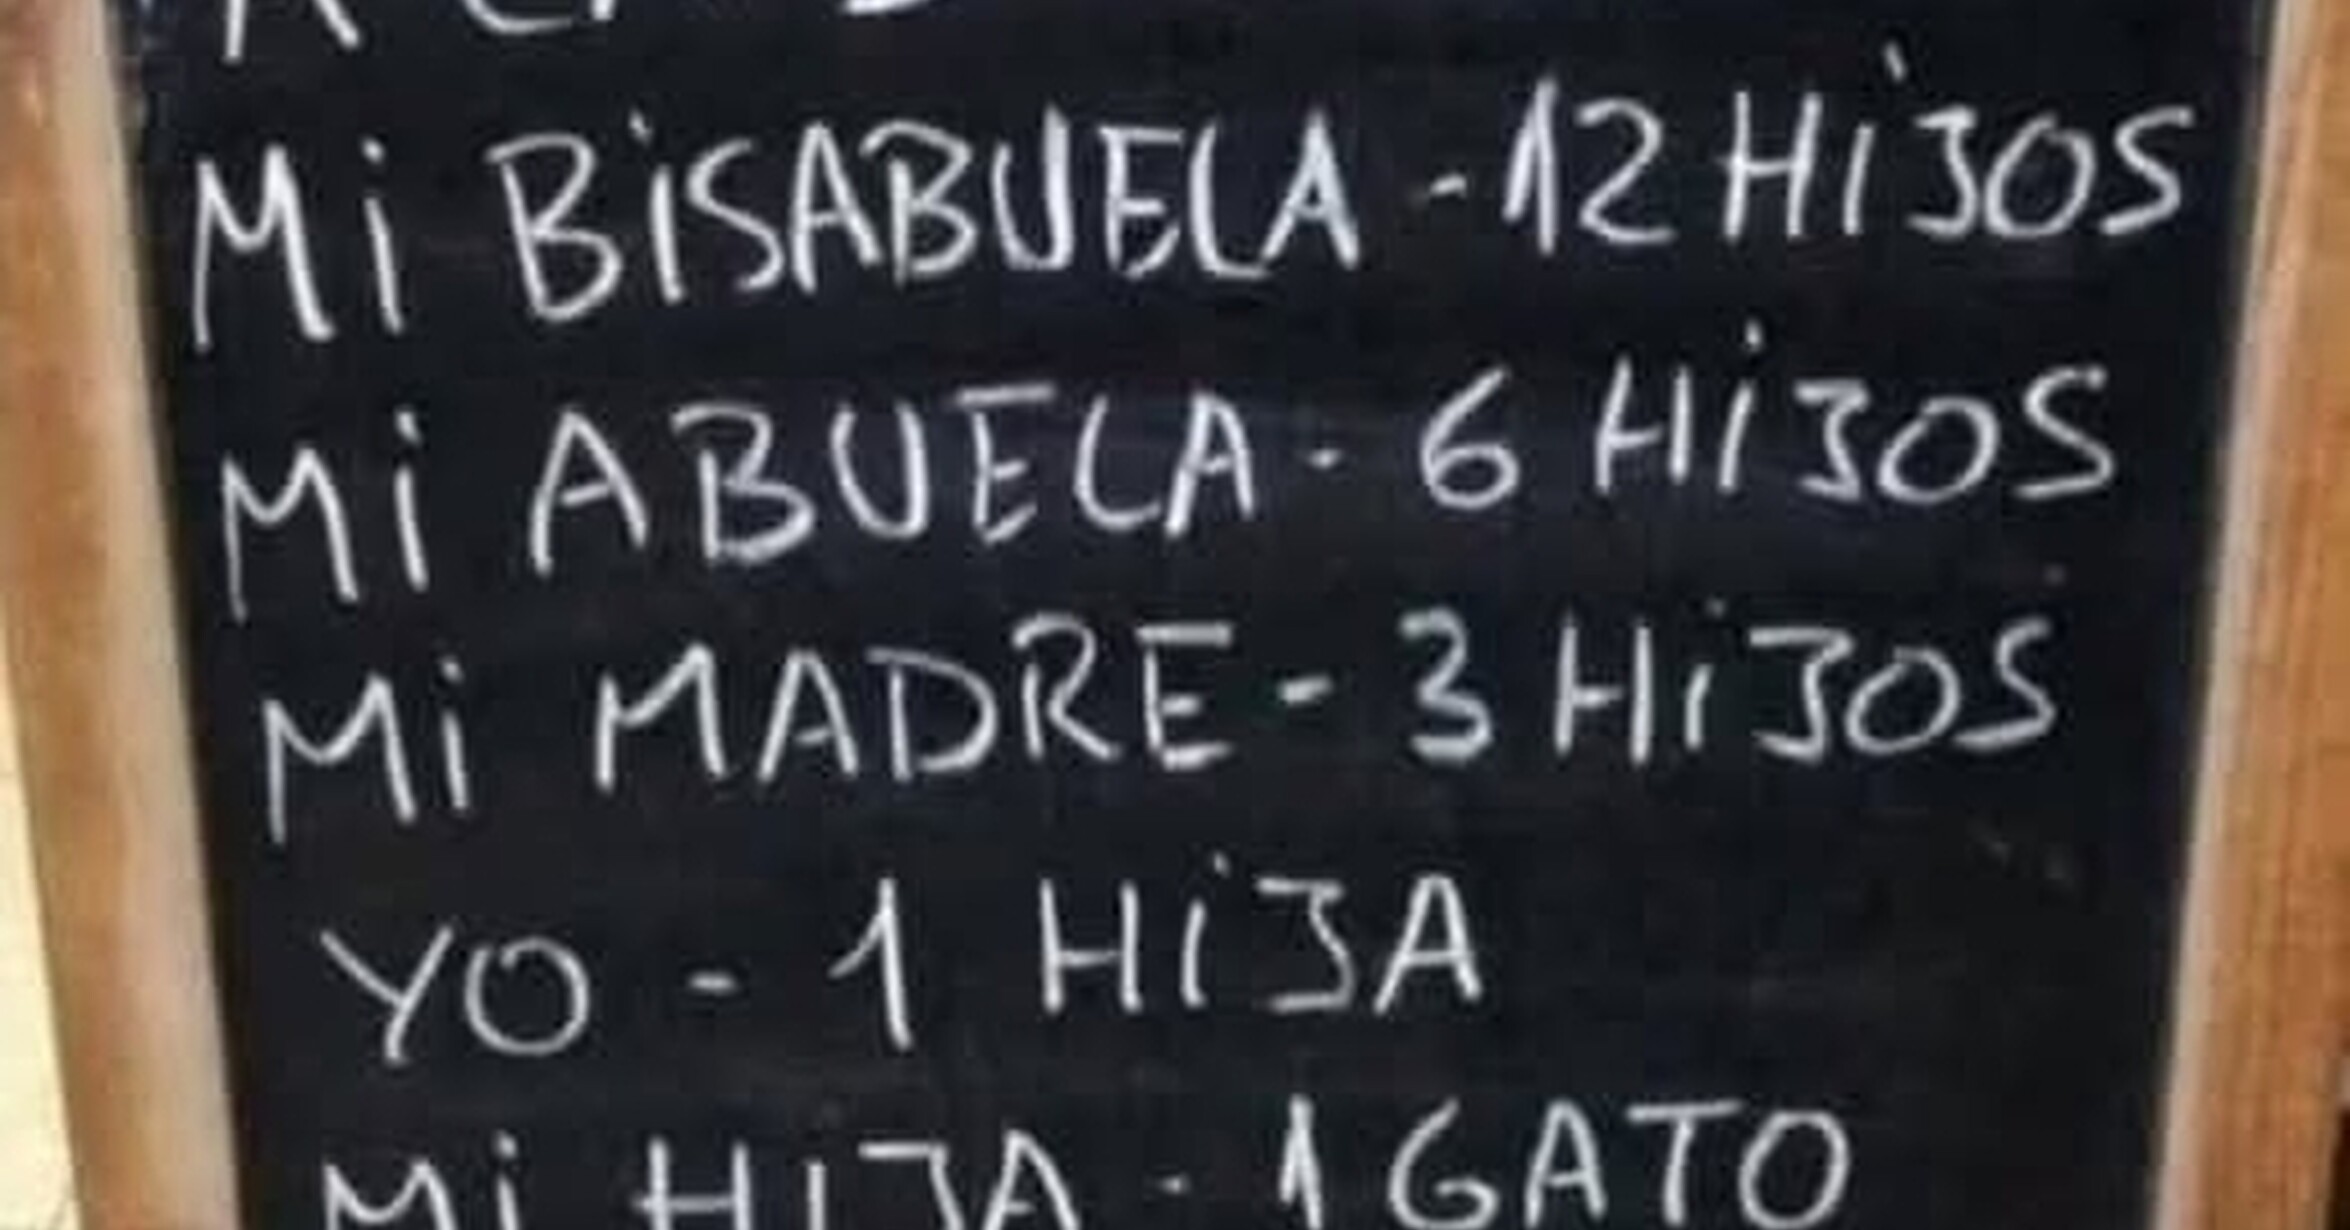 Mi BiSABUELA - 12 HiJOS
Mi ABUELA - 6 HiJOS
Mi MADRE - 3 HiJOS
YO - 1 HiJA
Mi HiJA - 1 GATO